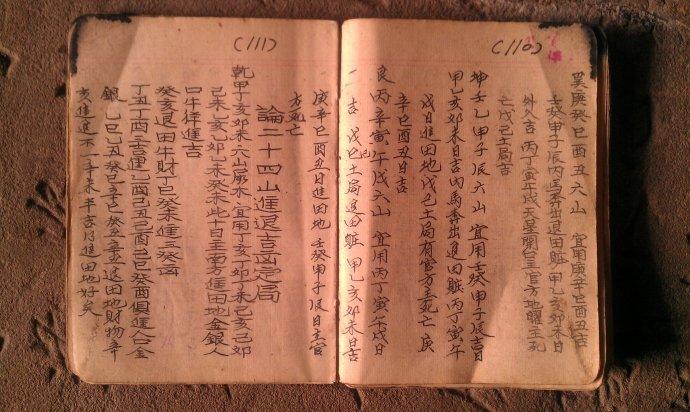 (110)
巽庚癸巳酉丑六山 宜用庚辛巳酉丑吉
壬癸甲子辰内馬香出退田賍甲乙亥卯未日
外久吉 丙丁寅午戌天星開台 官方地曜主死
亡戊己土局吉
坤壬乙甲子辰六山 宜用壬癸甲子辰吉日
甲乙亥卯未日吉内馬香出退田賍丙丁寅午
戌日進田地戊己土局有官方主死亡 庚
辛巳酉丑日吉
艮丙辛寅午戌六山 宜用丙丁寅午戌日
一吉 戊己土局退田賍 甲乙亥卯未日吉
(111)
庚辛巳酉丑日進田地 壬癸甲子辰日主官
方死亡
論二十四山進退吉凶定局
乾甲丁亥卯未六山屬木宜用丁亥丁卯丁未己亥己卯
己未乙亥乙卯乙未癸未此十日主南方進田地金銀人
口牛徉進吉
癸亥退田牛財丁巳癸未進三癸凶
丁丑丁酉三吉進乙酉己丑己酉己巳癸酉俱進人口金
銀乙巳乙丑癸巳辛吉癸丑辛丑進田地財物辛
亥進退不一辛未半吉月進田地好矣